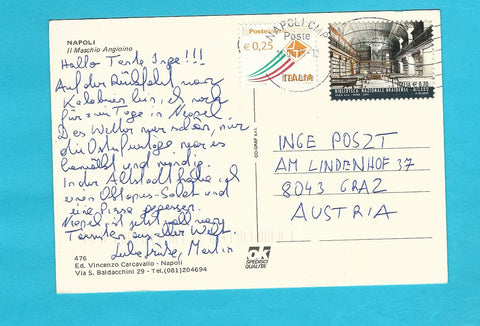 NAPOLI
Il Maschio Angioino
Hallo Tante Inge!!!
Auf der Rückfahrt von
Kalabrien bin ich noch
für zwei Tage in Neapel.
Das Wetter war schön, nur
die Ostersonntage war es
bewölkt und windig.
In der Altstadt habe ich
einen Oktopus-Salat und
eine Pizze gegessen.
Neapel ist jetzt voll von
Touristen aus aller Welt.
Liebe Grüße, Martin
476
Ed. Vincenzo Carcavallo - Napoli
Via S. Baldacchini 29 - Tel.(081)204694
CO.GRAF s.r.l.
OK
SPECIRID
QUALITÉ
Posteitaliane
Poste
€ 0,25
ITALIA
NAPOLI CMP
ITALIA € 0,70
BIBLIOTECA NAZIONALE BRAIDENSE - MILANO
INGE POSZT
AM LINDENHOF 37
8043 GRAZ
AUSTRIA